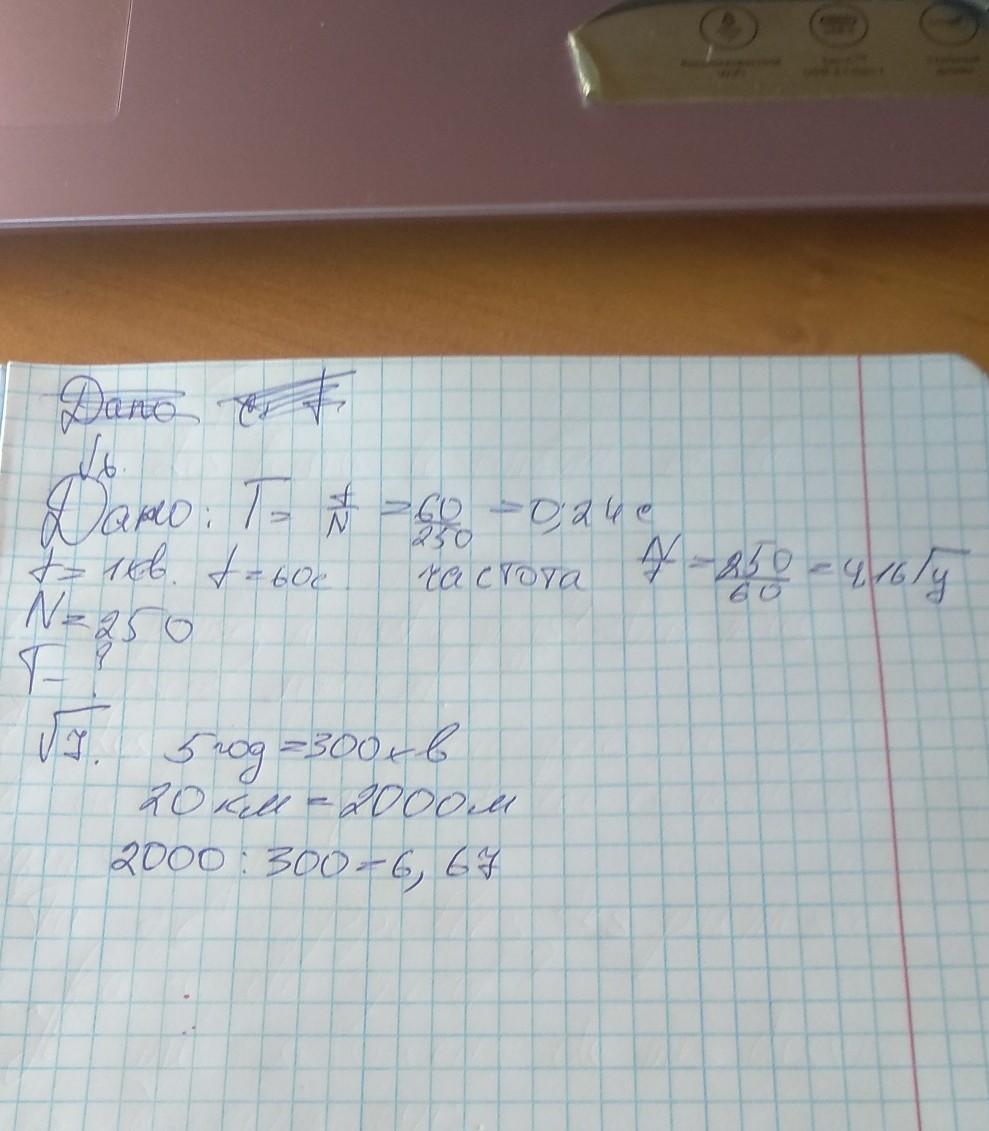 Дано
√6.
Дано: T = t/N = 60/250 = 0,24 с
t = 1хв. t = 60с частота N/t = 250/60 = 4,16 Гц
N = 250
T - ?
√7. 5 год = 300 хв
20 км = 2000 м
2000 : 300 = 6,67